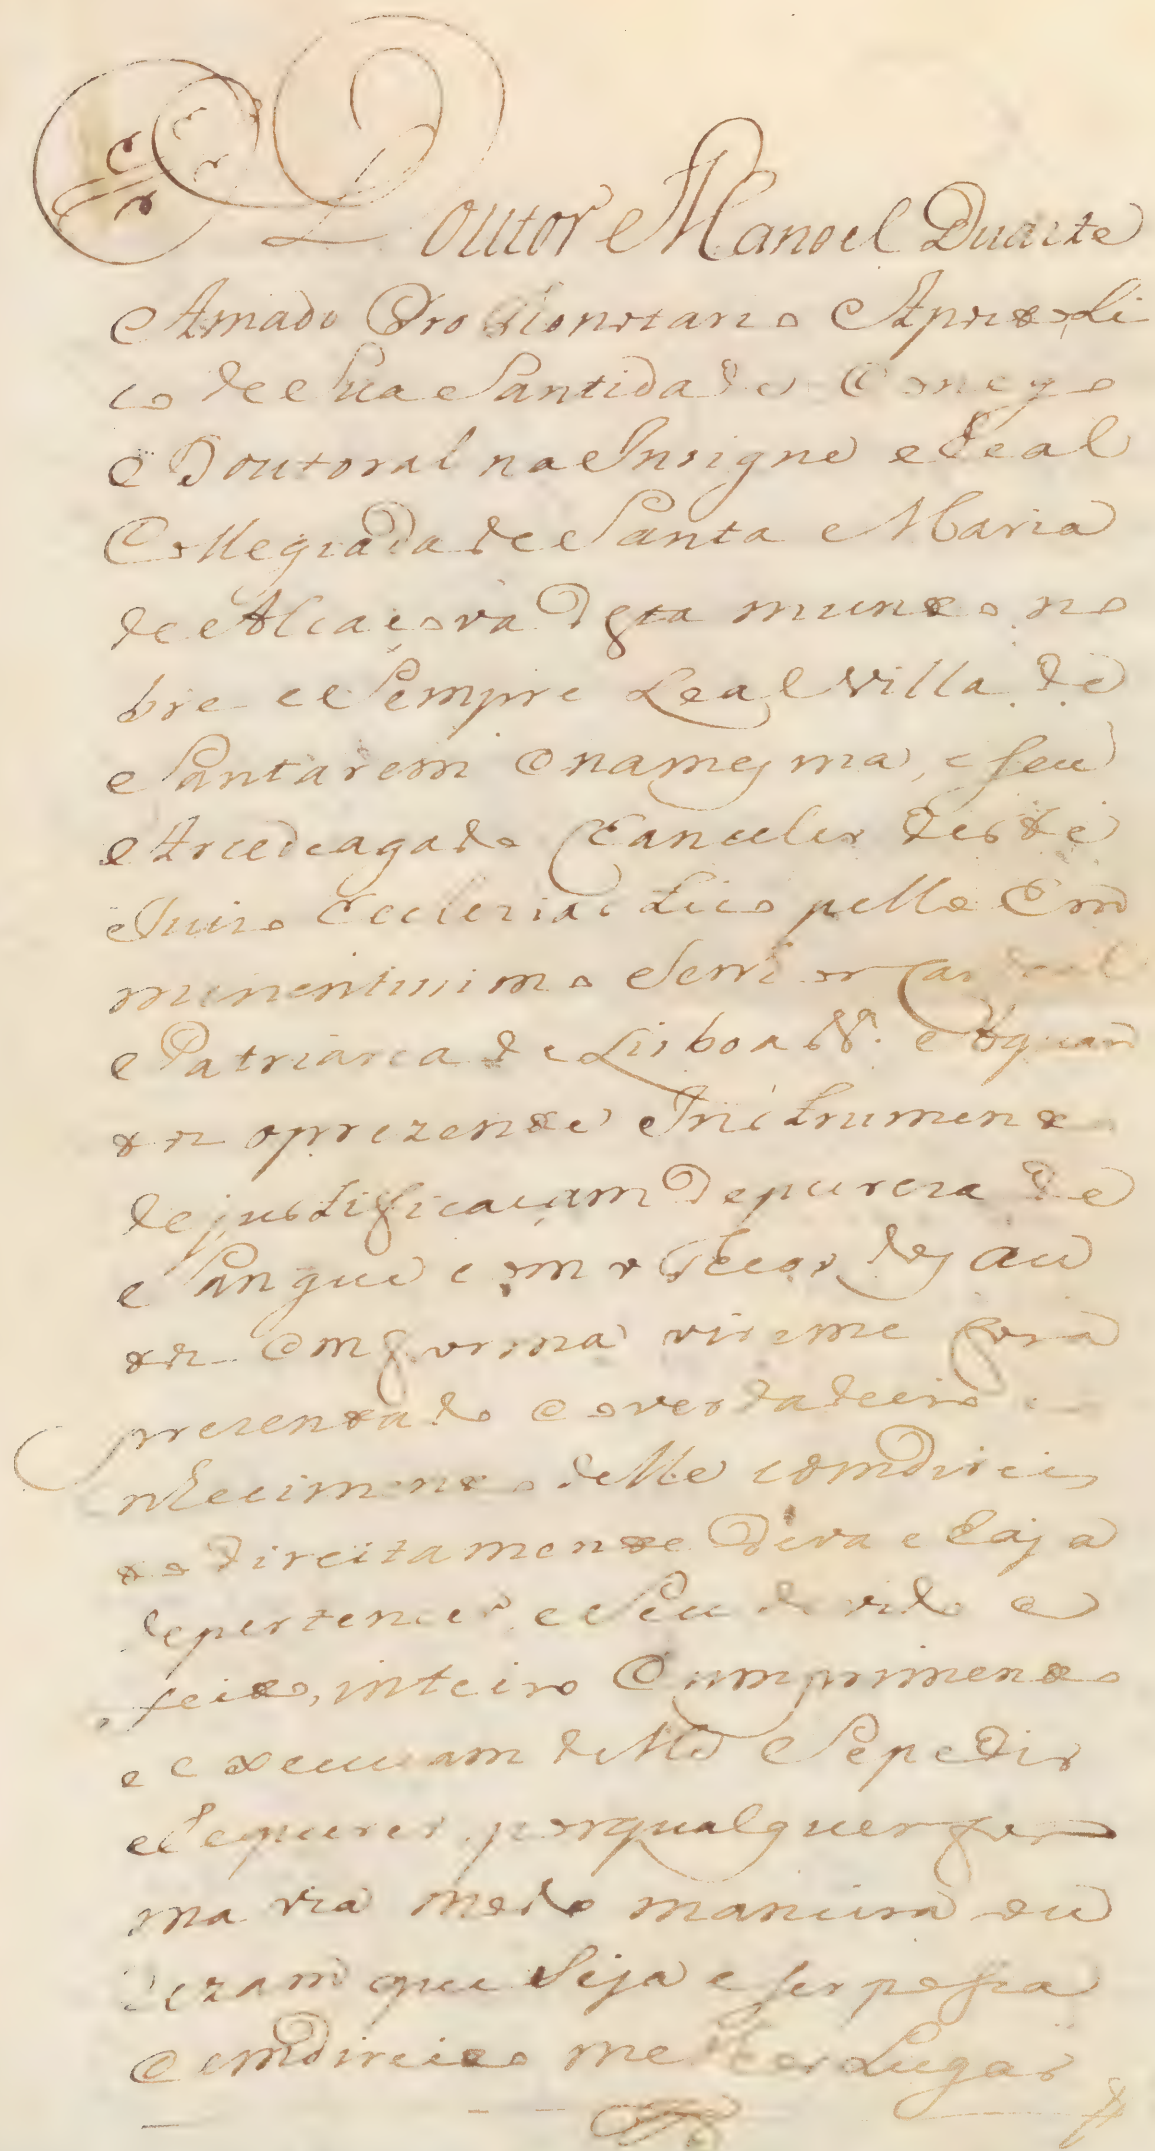 Doutor Manoel Duarte
Amado Prothonotario Apostoli
co de Sua Santidade Conego
e Doutoral na Insigne e Real
Collegiada de Santa Maria
de Alcaçova desta munto no
bre e Sempre Leal Villa de
Santarem e na mesma, e seu
Arcediagado Chanceler deste
Juizo Eccleziastico pello Emi
minentissimo Senhor Cardeal
Patriarca de Lisboa Vª. Aquan
tos o prezente Instrumento
de justificaçam de pureza de
Sangue com o theor dos au
tos em forma virem e fora
prezentado e o verdadeiro co
nhecimento delle com direi
to direitamente deva e haja
de pertencer e Seu devido e
feito, inteiro Cumprimento
e execuçam delle Se pedir
e Requerer por qualquer for
ma via modo maneira ou
rezam que Seja e ser possa
e com direito melhor Lugar